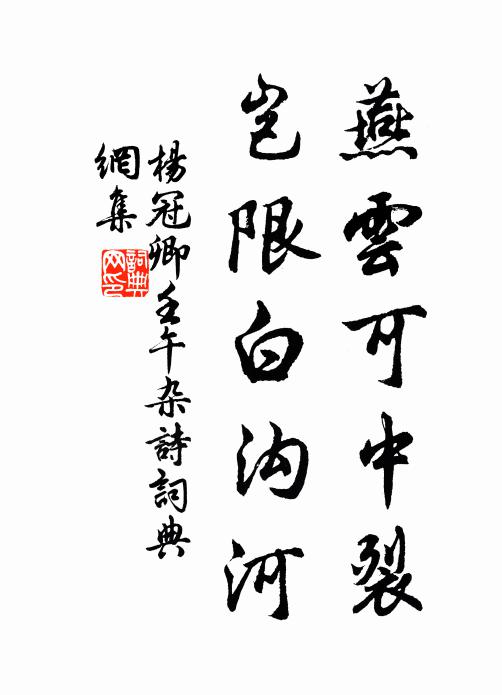 燕雲可中裂
岂限白沟河
楊冠卿壬午杂詩詞典
網集
詞典网印